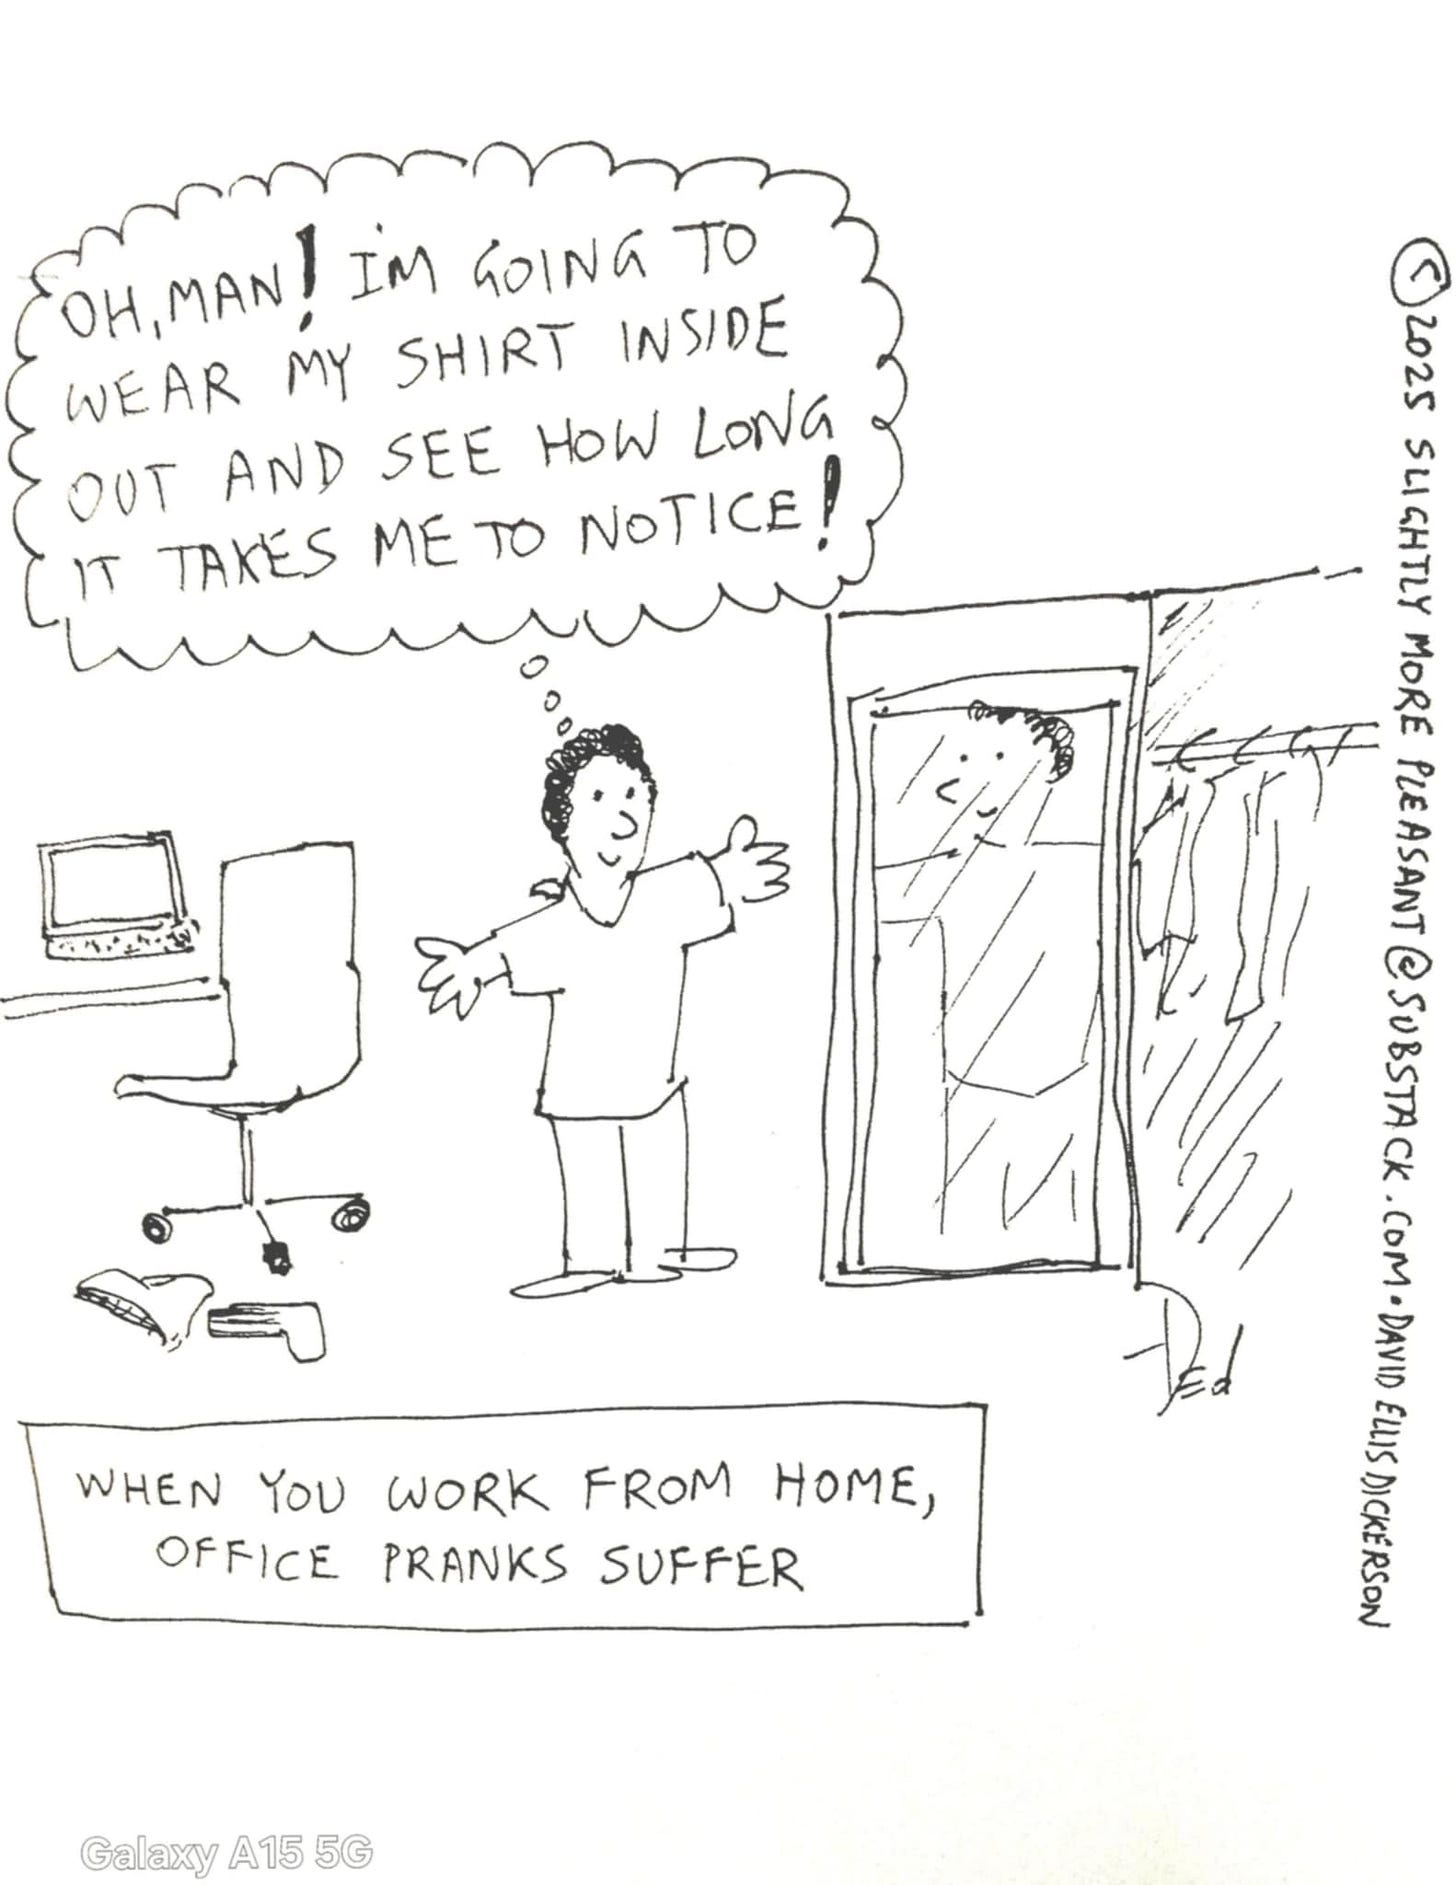 OH, MAN! I'M GOING TO
WEAR MY SHIRT INSIDE
OUT AND SEE HOW LONG
IT TAKES ME TO NOTICE!
©2025 SLIGHTLY MORE PLEASANT@SUBSTACK.COM • DAVID ELLIS DICKERSON
DEd
WHEN YOU WORK FROM HOME,
OFFICE PRANKS SUFFER
Galaxy A15 5G